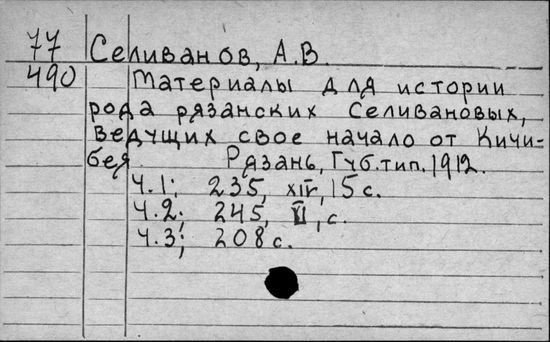 77 Селиванов, А.В.
490 Материалы для истории
рода рязанских Селивановых,
ведущих свое начало от Кичи-
бея. Рязань, Губ.тип. 1912.
Ч.1; 235, XIV, 15 с.
Ч.2; 245, VI, с.
Ч.3; 208 с.